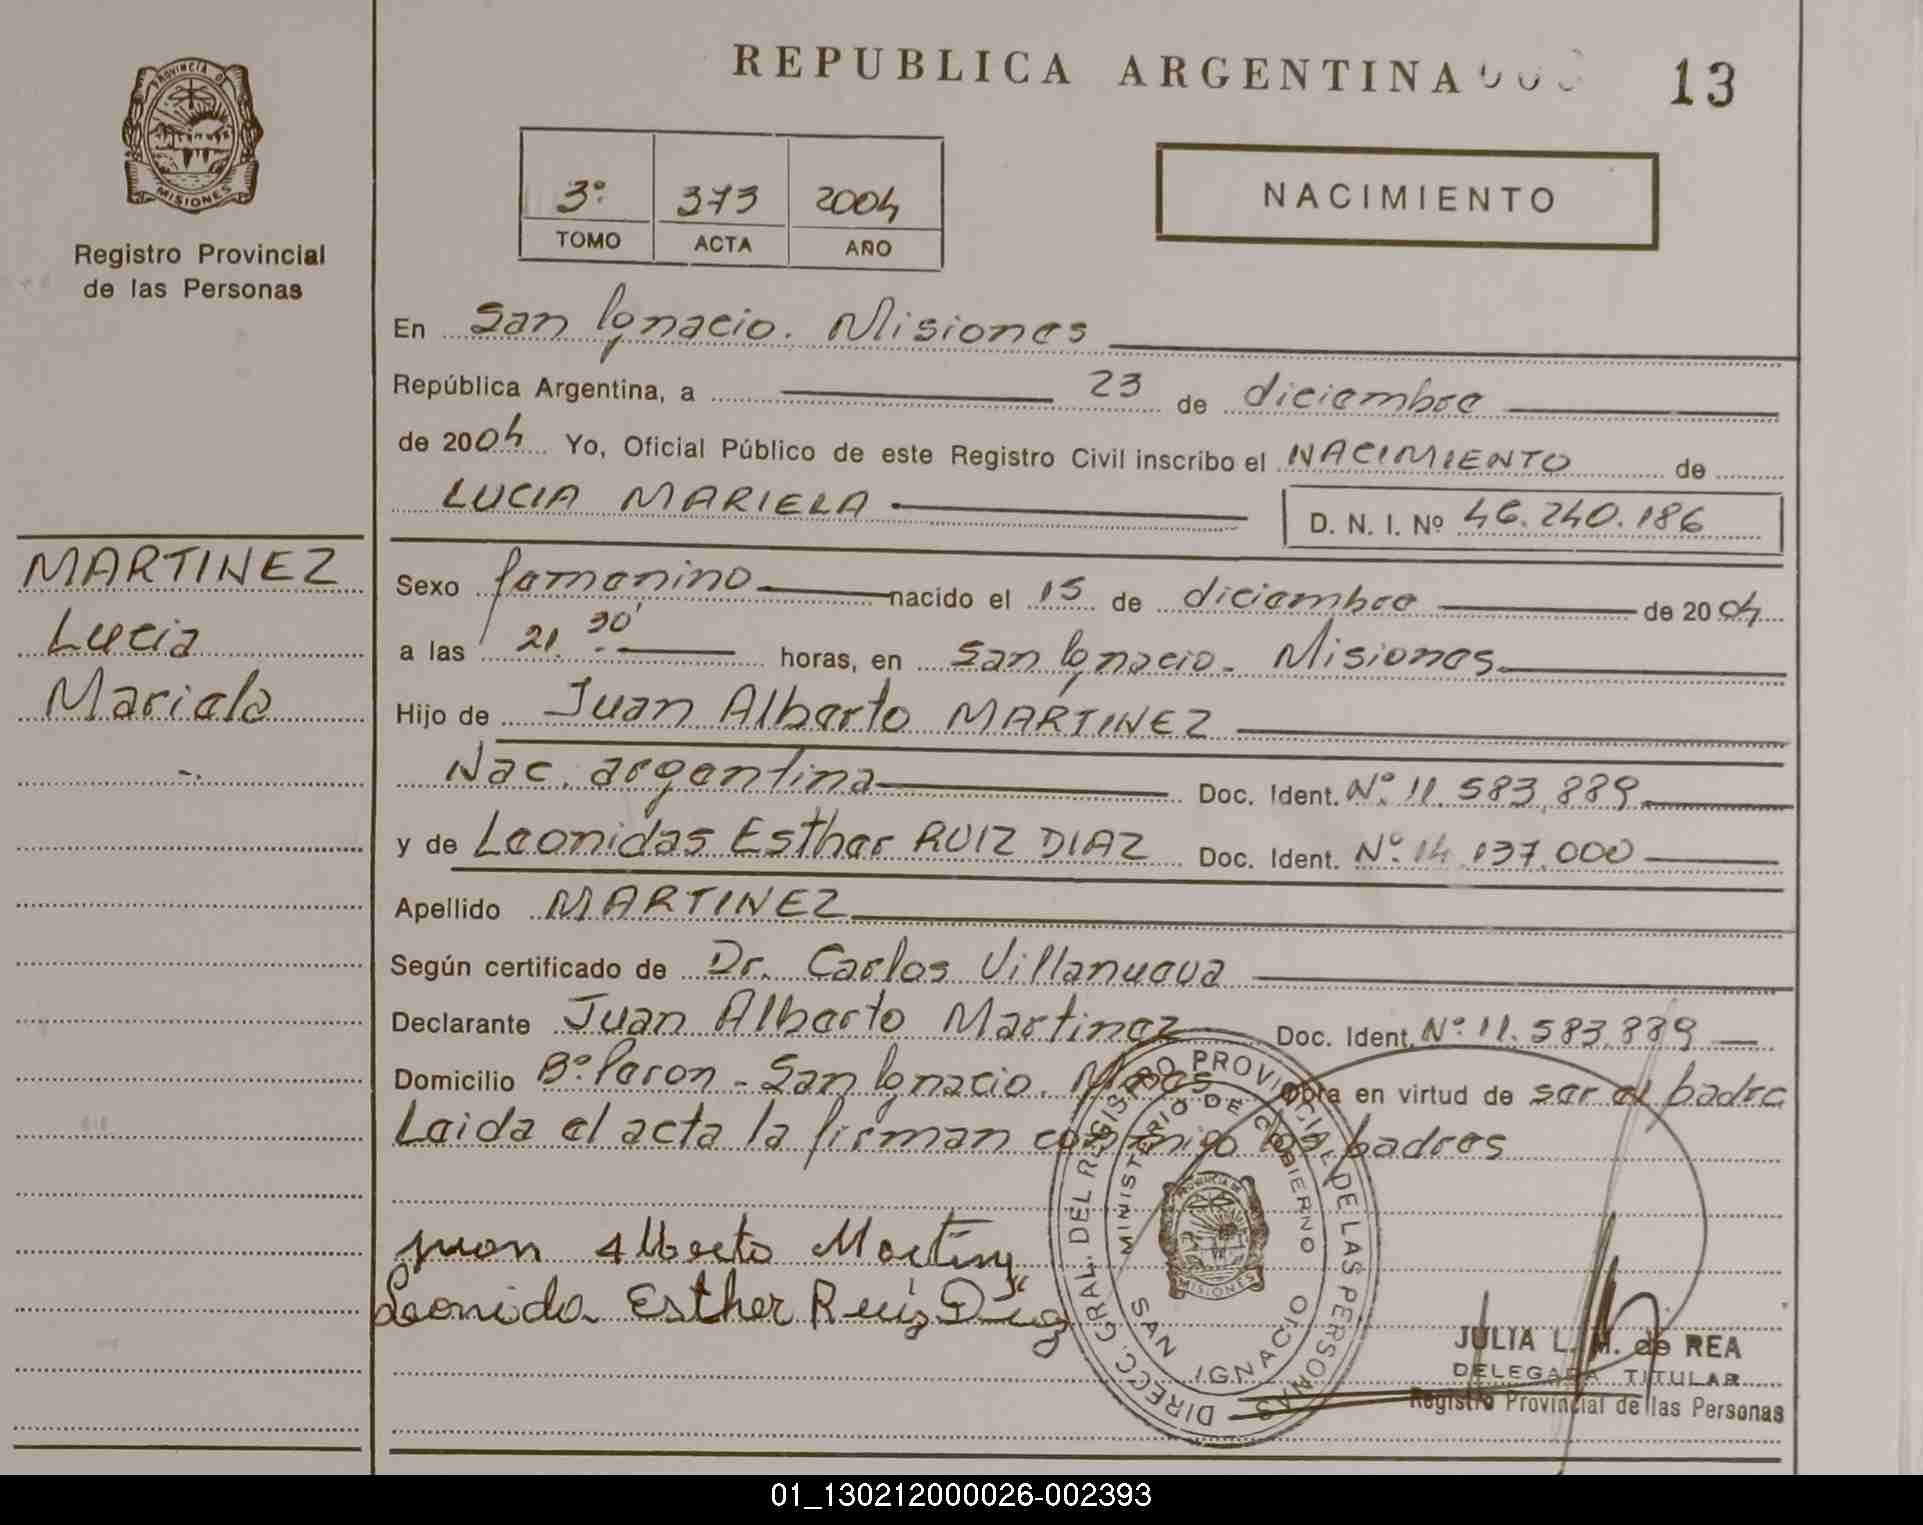 REPUBLICA ARGENTINA 13
PROVINCIA DE
MISIONES
Registro Provincial
de las Personas
3º 373 2004
TOMO ACTA AÑO
NACIMIENTO
En San Ignacio. Misiones
República Argentina, a 23 de diciembre
de 2004 Yo, Oficial Público de este Registro Civil inscribo el NACIMIENTO de
LUCIA MARIELA D. N. I. Nº 46.240.186
MARTINEZ
Lucia
Mariela
Sexo femenino nacido el 15 de diciembre de 2004
a las 21.30' horas, en San Ignacio - Misiones
Hijo de Juan Alberto MARTINEZ
Nac. argentina Doc. Ident. Nº 11.583.889
y de Leonidas Esther RUIZ DIAZ Doc. Ident. Nº 14.137.000
Apellido MARTINEZ
Según certificado de Dr. Carlos Villanueva
Declarante Juan Alberto Martinez Doc. Ident. Nº 11.583.889
Domicilio Bº Peron - San Ignacio. Mnes Obra en virtud de ser el padre
Leida el acta la firman conmigo los padres
Juan Alberto Martinez
Leonida Esther Ruiz Diaz
DIRECC. GRAL. DEL REGISTRO PROVINCIAL DE LAS PERSONAS
MINISTERIO DE GOBIERNO
PROVINCIA DE
MISIONES
SAN IGNACIO
JULIA L. M. de REA
DELEGADA TITULAR
Registro Provincial de las Personas
01_130212000026-002393